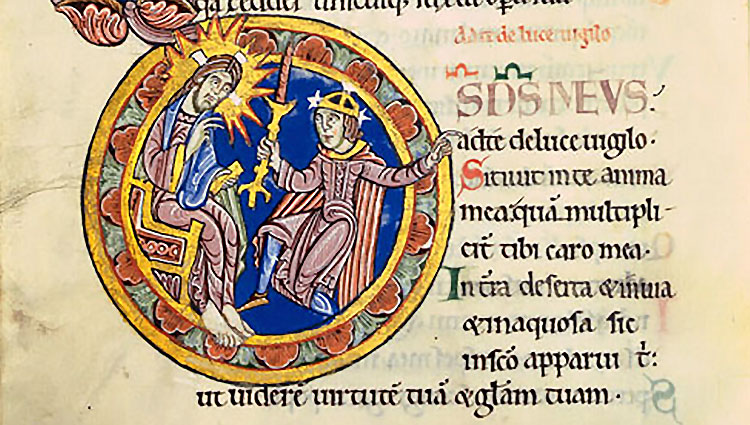 ad te de luce uigilo
S D̅S MEVS.
ad te de luce uigilo·
Sitiuit in te anima
mea quā multipli-
cit̅ tibi caro mea·
In t̅ra deserta & inuia
& inaquosa sic
in sc̅o apparui t̅:
ut uiderē uirtutē tuā & gl̅am tuam·